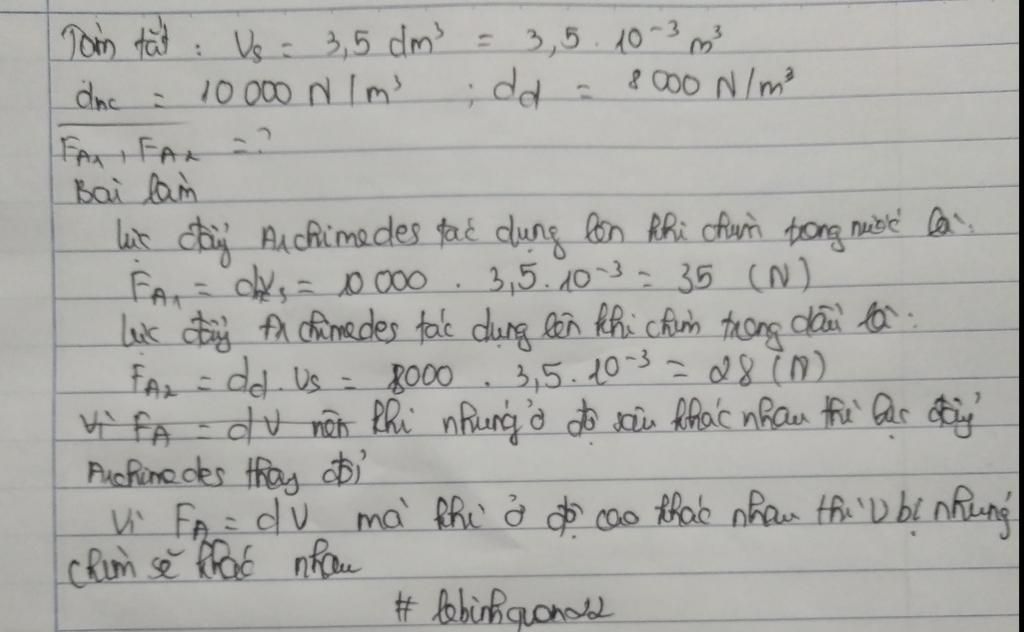 Tóm tắt : Vs = 3,5 dm³ = 3,5 . 10⁻³ m³
dnc = 10 000 N/m³ ; dd = 8 000 N/m³
FA1, FA2 = ?
Bài làm
lực đẩy Archimedes tác dụng lên khi chìm trong nước là:
FA1 = dVs = 10 000 . 3,5 . 10⁻³ = 35 (N)
lực đẩy Archimedes tác dụng lên khi chìm trong dầu là :
FA2 = dd . Vs = 8000 . 3,5 . 10⁻³ = 28 (N)
Vì FA = dV nên khi nhúng ở độ sâu khác nhau thì lực đẩy
Archimedes thay đổi
Vì FA = dV mà khi ở độ cao khác nhau thì V bị nhúng
chìm sẽ khác nhau